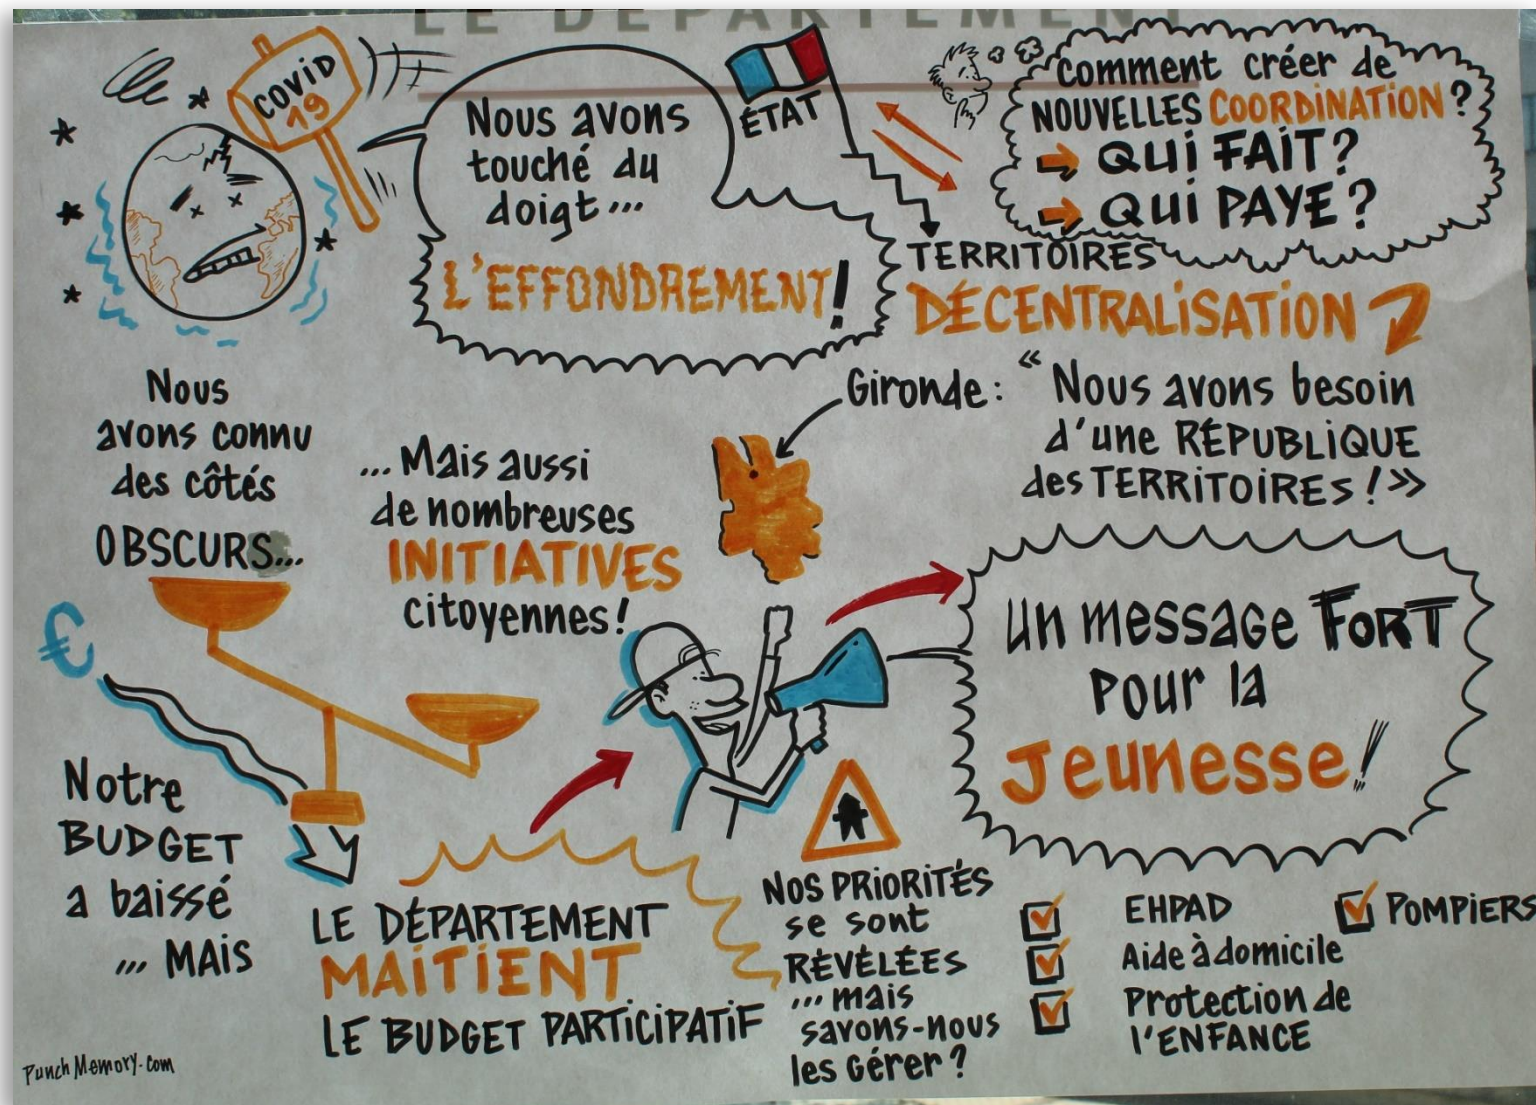 LE DÉPARTEMENT
COVID
19
Nous avons
touché du
doigt...
L'EFFONDREMENT!
ÉTAT
TERRITOIRES
Comment créer de
NOUVELLES COORDINATION?
QUI FAIT?
QUI PAYE?
DÉCENTRALISATION
Gironde: « Nous avons besoin
d'une RÉPUBLIQUE
des TERRITOIRES! »
Nous
avons connu
des côtés
OBSCURS...
... Mais aussi
de nombreuses
INITIATIVES
citoyennes!
€
Un message FORT
pour la
Jeunesse!
Notre
BUDGET
a baissé
... MAIS
LE DÉPARTEMENT
MAITIENT
LE BUDGET PARTICIPATIF
NOS PRIORITÉS
se sont
RÉVÉLÉES
... mais
savons-nous
les Gérer?
EHPAD
Aide à domicile
Protection de
l'ENFANCE
POMPIERS
PunchMemory.com